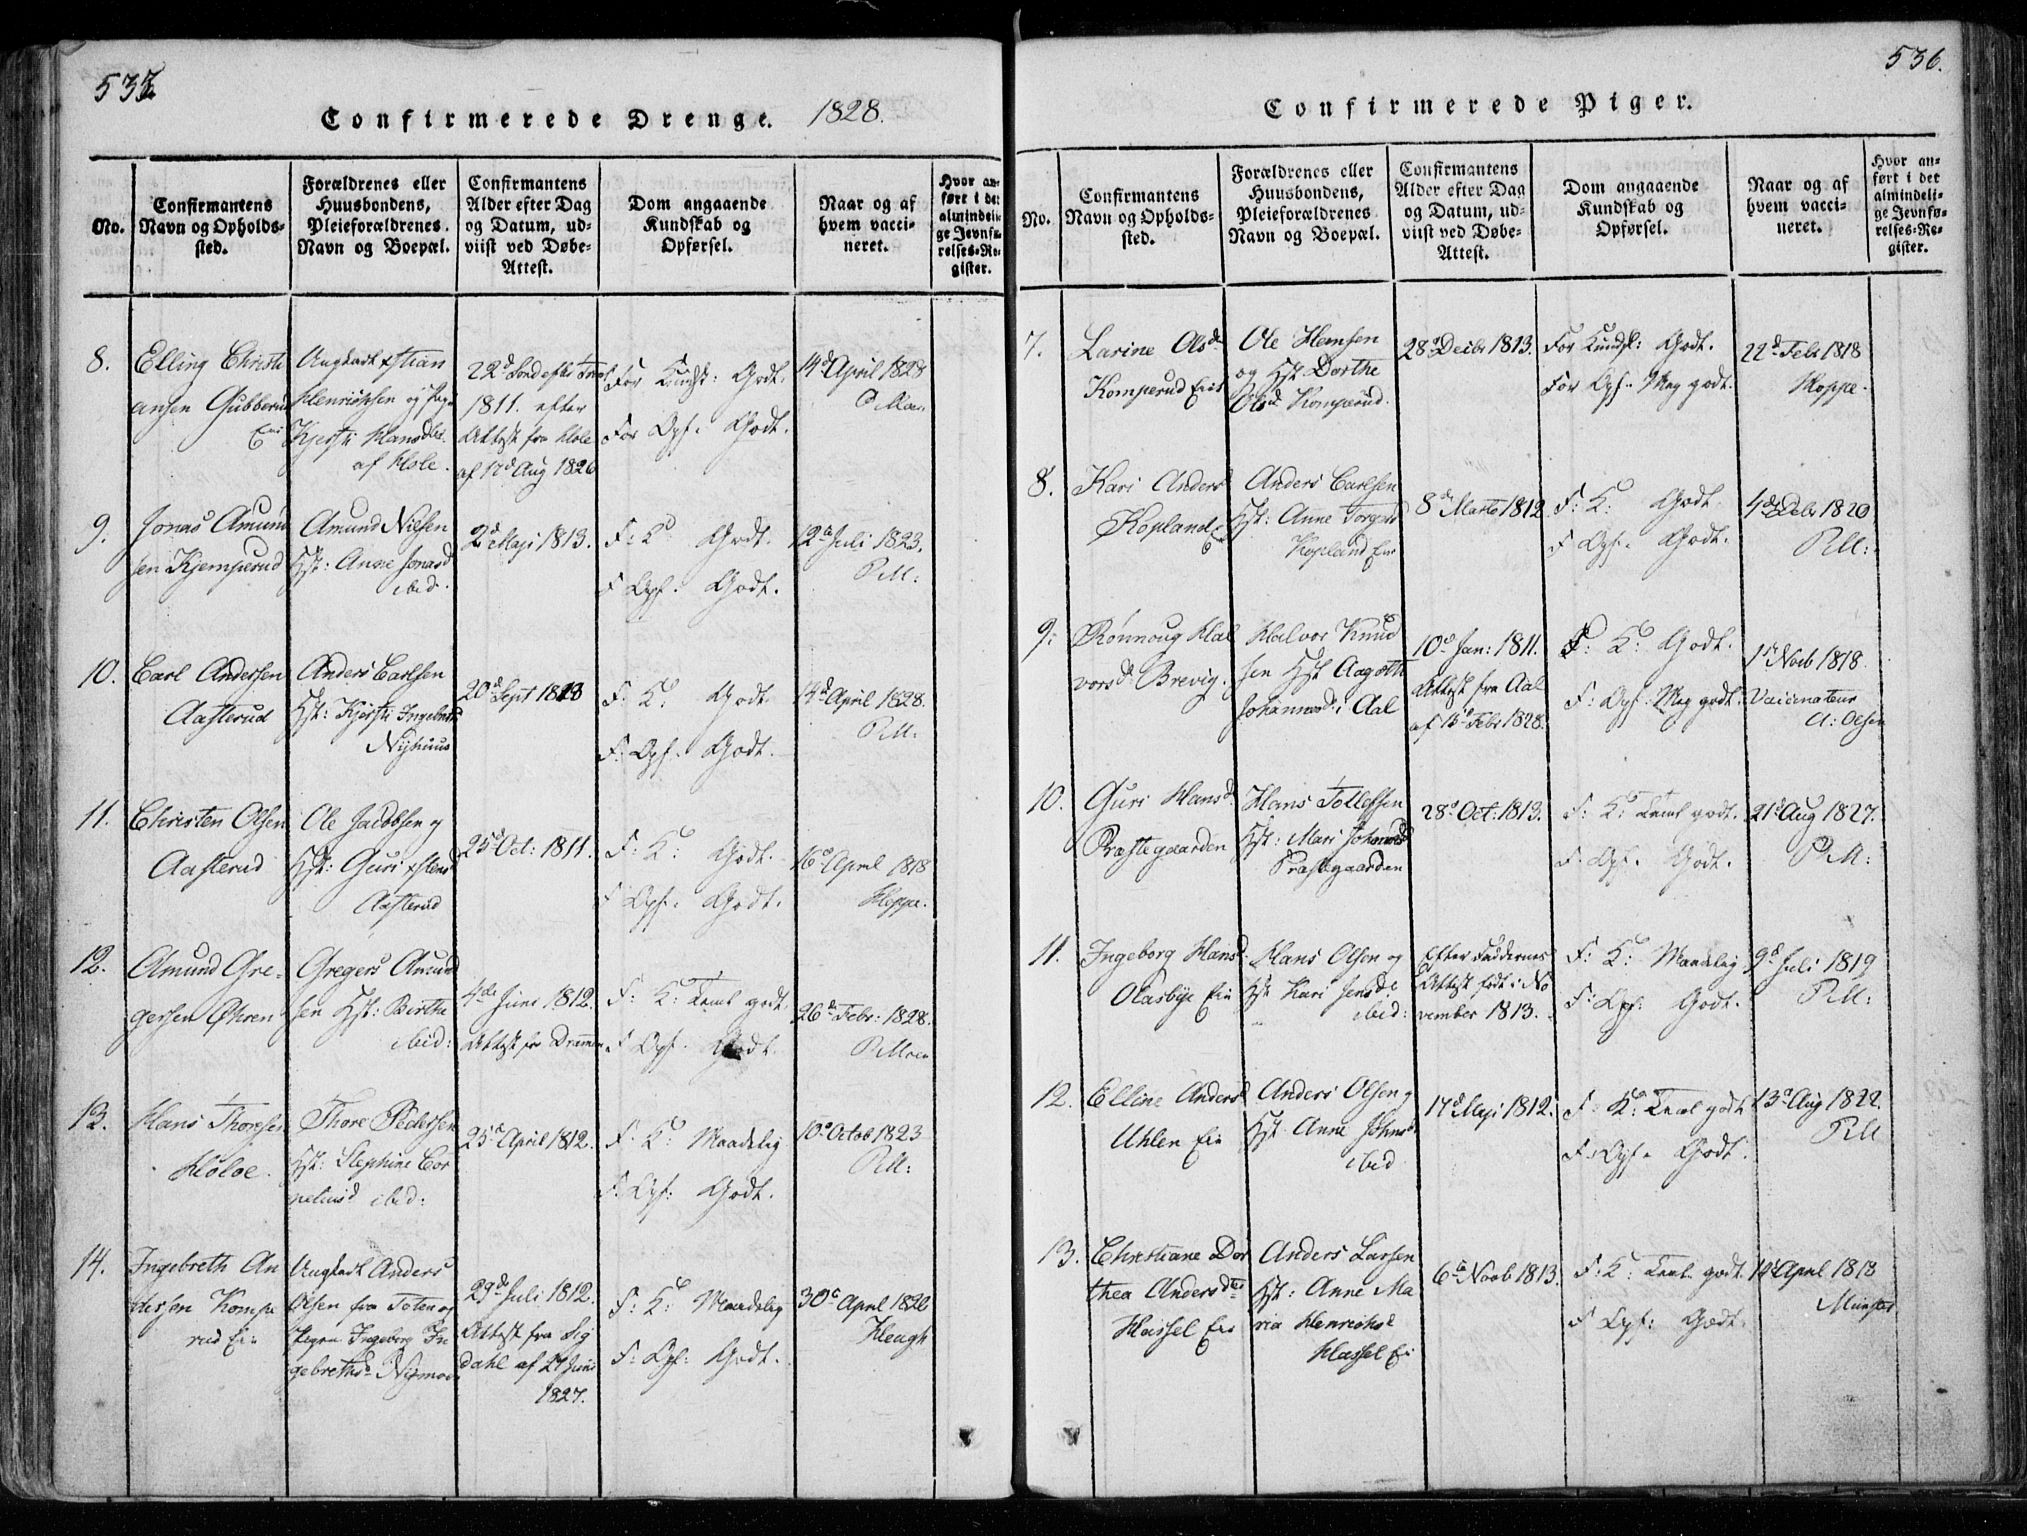 535.
Confirmerede Drenge. 1828.
No.
Confirmantens
Navn og Opholds-
sted.
Forældrenes eller
Huusbondens,
Pleieforældrenes
Navn og Boepæl.
Confirmantens
Alder efter Dag
og Datum, ud-
viist ved Døbe-
Attest.
Dom angaaende
Kundskab og
Opførsel.
Naar og af
hvem vacci-
neret.
Hvor an-
ført i det
almindeli-
ge Jevnfø-
relses-Re-
gister.
8.
Elling Christi
ansen Gubberud
Eie
Ungkarl Xstian
Henrichsen og Pige
Kjersti Hansdtr
af Hole.
22d Sond efter Trinit
1811. efter
Attest fra Hole
af 17d Aug 1826
For Kundsk: Godt.
For Opf. Godt.
14d April 1828
P Moe
9.
Jonas Amund
sen Kjemperud
Amund Nilsen
Hst: Anne Jonasd
ibid.
2d Maji 1813.
F. K: Godt.
F Opf. Godt.
12te Juli 1823.
P.M:
10.
Carl Andersen
Aasterud
Anders Carlsen
Hst: Kjersti Ingebretsd
Nyhuus
20d Sept 1813
F. K: Godt.
F. Opf. Godt.
14d April 1828.
P.M:
11.
Christen Olsen
Aasterud
Ole Jacobsen og
Hst: Guri Xstensd
Aasterud
25d Oct: 1811.
F. K: Godt.
F Opf. Godt.
16d April 1818
Hoppe.
12.
Amund Gre-
gersen Øhren
Gregers Amund
sen Hst: Berthe
ibid:
4de Juni 1812.
Attest fra Drammen
F. K: Teml godt
F Opf. Godt.
26d Febr: 1828.
P. Moe
13.
Hans Thoresen
Holoe.
Thore Pedersen
Hst: Stephine Cor
neliusd ibid:
25d April 1812.
F. K: Maadelig
F. Opf: Godt.
10d Octob 1823
P.M:
14.
Ingebreth An
dersen Kompe
rud Eie
Ungkarl Anders
Olsen fra Toten og
Pigen Ingeborg In
gebrethsd Nymoe
29de Juli 1812.
Attest fra Sig
dahl af 27 Junii
1827.
F. K: Maadelig
F: Opf: Godt.
30d April 1826
Heugh
536.
Confirmerede Piger.
No.
Confirmantens
Navn og Opholds-
sted.
Forældrenes eller
Huusbondens,
Pleieforældrenes
Navn og Boepæl.
Confirmantens
Alder efter Dag
og Datum, ud-
viist ved Døbe-
Attest.
Dom angaaende
Kundskab og
Opførsel.
Naar og af
hvem vacci-
neret.
Hvor an-
ført i det
almindeli-
ge Jevnfø-
relses-Re-
gister.
7.
Larine Olsd
Komperud Eie
Ole Hansen
og Hst Dorthe
Olsd Komperud.
28d Decbr 1813.
For Kundsk: Godt.
For Opf. Meg godt.
22d Febr 1818
Hoppe.
8.
Kari Andersd
Kopland Eie
Anders Carlsen
Hst: Anne Torgersd
Kopland Eie
8de Marts 1812
F: K: Godt
F Opf. Godt.
4de Decbr 1820
P.M:
9:
Rønnoug Hal
vorsd Brevig.
Halvor Knud
sen Hst Aagoth
Johannesd i Aal
10d Jan: 1811.
Attest fra Aal
af 13d Febr 1828.
F: K: Godt.
F. Opf. Meg godt.
1st Novb 1818.
Vaccinateur
A: Olsen
10.
Guri Hansd
Præstegaarden
Hans Tollefsen
Hst: Mari Johannesd
Præstegaarden
28d Oct: 1813.
F: K: Teml godt.
F. Opf. Godt.
21d Aug 1827.
P.M:
11.
Ingeborg Hansd.
Olasbye Eie
Hans Olsen og
Hst Kari Jensd
ibid:
Efter Faddernes
Attest født i No
vember 1813.
F: K: Maadelig
F: Opf: Godt.
9d Juli 1819
P.M:
12.
Elline Andersd
Uhlen Eie
Anders Olsen og
Hst Anne Johnsd
ibid
17d Maji 1812.
F. K: Teml godt
F: Opf. Godt.
13d Aug 1822.
P.M
13.
Christiane Dor
thea Andersdtr
Hassel Eie
Anders Larsen
Hst: Anne Ma
ria Henrichsd
Hassel Ei
6te Novb 1813.
F: K: Teml godt
F Opf: Godt.
14d April 1818
Münster